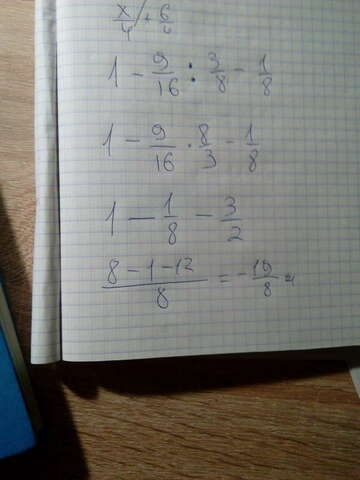 x/4 + 6/
1 - 9/16 : 3/8 - 1/8
1 - 9/16 · 8/3 - 1/8
1 - 1/8 - 3/2
(8 - 1 - 12)/8 = -